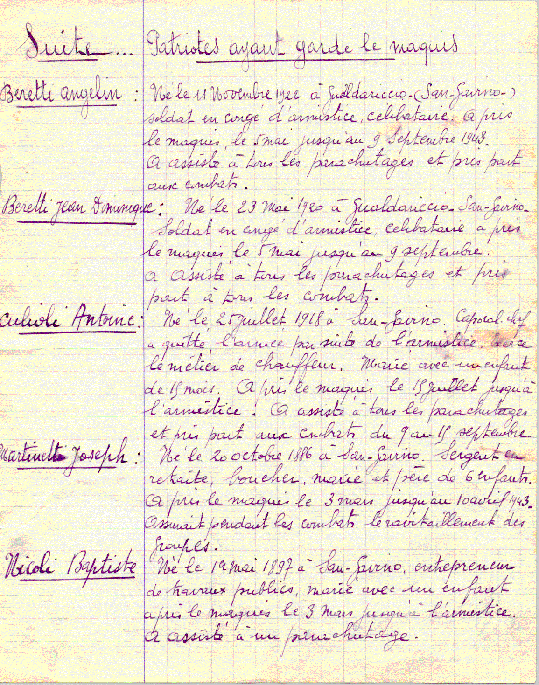 Suite... Patriotes ayant garde le maquis
Beretti Angelin : Né le 11 Novembre 1922 à Gualdariccio (San-Gavino-)
Soldat en congé d'armistice, célibataire. A pris
le maquis, le 5 mai jusqu'au 9 Septembre 1943.
A assisté à tous les parachutages et pris part
aux combats.
Beretti Jean Dominique : Né le 23 Mai 1920 à Gualdariccio - San-Gavino-
Soldat en congé d'armistice, célibataire a pris
le maquis le 5 mai jusqu'au 9 septembre.
A assisté à tous les parachutages et pris
part à tous les combats.
Culioli Antoine : Né le 25 juillet 1918 à San-Gavino. Caporal chef
a quitté l'armée par suite de l'armistice.
le métier de chauffeur. Marié avec un enfant
de 15 mois. A pris le maquis, le 15 juillet jusqu'à
l'armistice. A assisté à tous les parachutages
et pris part aux combats du 9 au 15 septembre
Martinetti Joseph : Né le 20 octobre 1886 à San-Gavino. Sergent en
retraite, boucher, marié et père de 6 enfants.
A pris le maquis le 3 mars jusqu'au 10 avril 1943.
Assurait pendant les combats le ravitaillement des
groupes.
Nicoli Baptiste Né le 19 mai 1897 à San-Gavino, entrepreneur
de travaux publics, marié avec un enfant
a pris le maquis le 3 mars jusqu'à l'armistice.
A assisté à un parachutage.